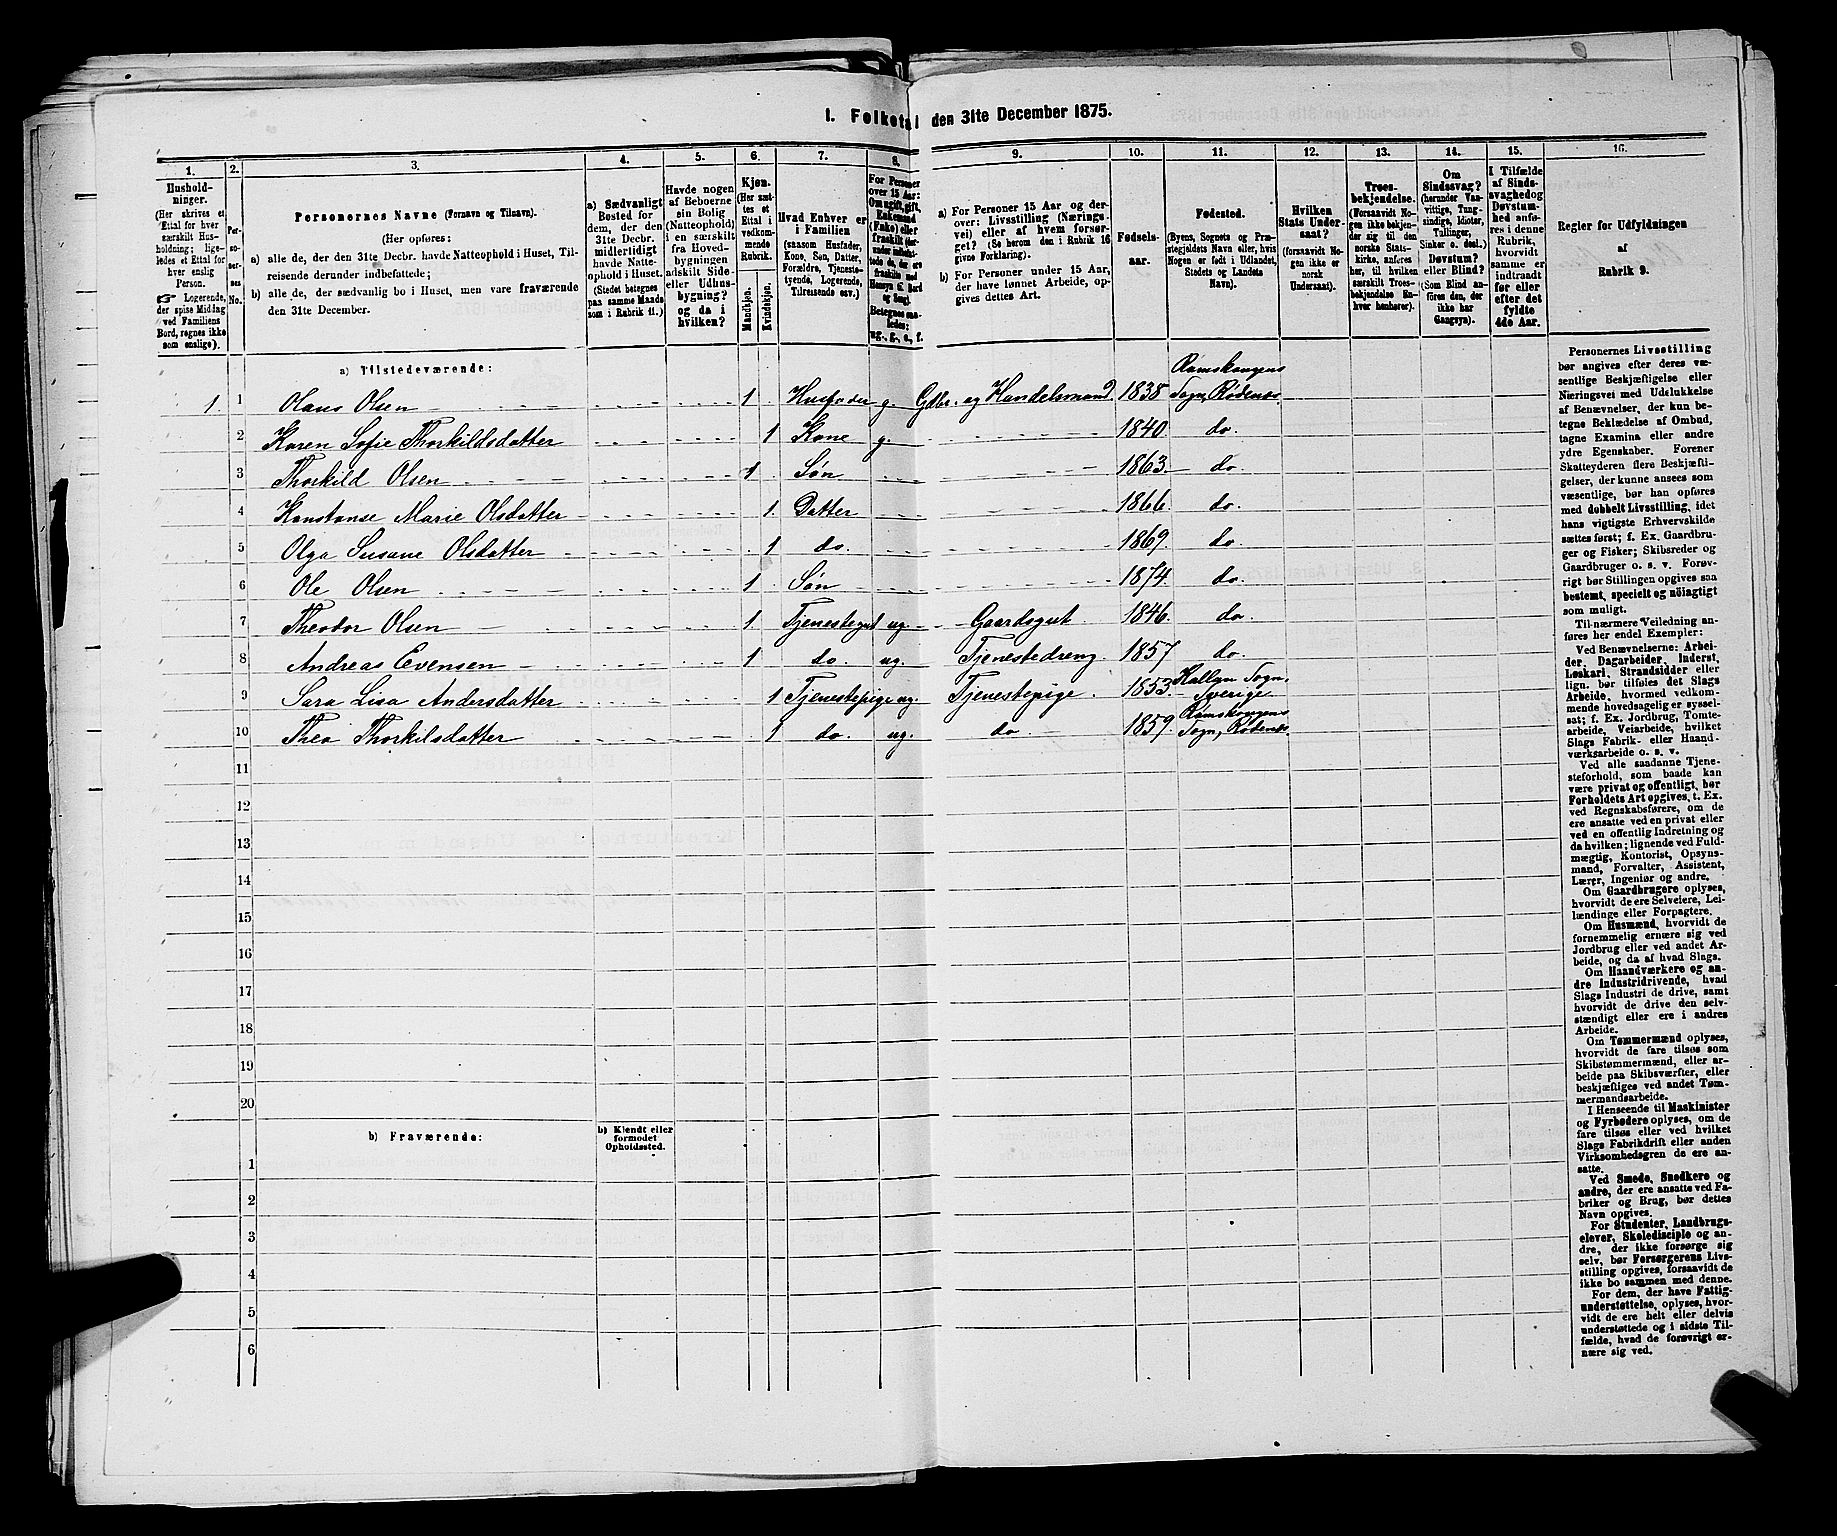 I. Folketal den 31te December 1875.
1.
2.
3.
4.
5.
6.
7.
8.
9.
10.
11.
12.
13.
14.
15.
16.
Hushold-
ninger.
(Her skrives et
Ettal for hver
særskilt Hus-
holdning; lige-
ledes et Ettal for
hver enslig
Person.
☞ Logerende,
der spise Middag
ved Familiens
Bord, regnes ikke
som enslige).
Per-
so-
ner-
nes
No.
Personernes Navne (Fornavn og Tilnavn).
(Her opføres:
a) alle de, der den 31te Decbr. havde Natteophold i Huset, Til-
reisende derunder indbefattede;
b) alle de, der sædvanlig bo i Huset, men vare fraværende
den 31te December.
a) Sædvanligt
Bosted for
dem, der den
31te Decbr.
midlerlidigt
havde Natte-
ophold i Huset.
(Stedet betegnes
paa samme Maade
som i Rubrik 11.)
Havde nogen
af Beboerne
sin Bolig
(Natteophold)
i en særskilt
fra Hoved-
bygningen
adskilt Side-
eller Udhus-
bygning?
og da i
hvilken?
Kjøn.
(Her sæt-
tes et
Ettal i
vedkom-
mende
Rubrik.
Mandkjøn.
Kvindekjøn.
Hvad Enhver er
i Familien
(saasom Husfader,
Kone, Søn, Datter,
Forældre, Tjeneste-
tyende, Logerende,
Tilreisende osv.)
For Personer
over 15 Aar:
Om ugift, gift,
Enkemand
(Enke) eller
fraskilt
Betegnes saa-
ledes:
ug., g., e., f.
a) For Personer 15 Aar og der-
over: Livsstilling (Nærings-
vei) eller af hvem forsør-
get? (Se herom den i Rubrik 16
givne Forklaring).
b) For Personer under 15 Aar,
der have lønnet Arbeide, op-
gives dettes Art.
Fødsels-
aar.
Fødested.
(Byens, Sognets og Præ-
stegjeldets Navn eller, hvis
Nogen er født i Udlandet,
Stedets og Landets
Navn).
Hvilken
Stats Under-
saat?
(forsaavidt No-
gen ikke er
norsk
Undersaat).
Troes-
bekjendelse.
(Forsaavidt No-
gen ikke bekjen-
der sig til den
norske Stats-
kirke, anføres
her, til hvilken
særskilt Troes-
bekjendelse En-
hver henhører).
Om
Sindssvag?
(herunder Van-
vittige, Tung-
sindige, Idioter,
Tullinger,
Sinker o. desl.)
Døvstum?
eller Blind?
(Som Blind an-
føres den, der
ikke har
Gangsyn).
I Tilfælde
af Sinds-
svaghed og
Døvstum-
hed anfø-
res i denne
Rubrik,
hvorvidt
samme er
indtraadt
før eller
efter det
fyldte
4de Aar.
Regler for Udfyldningen
af
Rubrik 9.
a) Tilstedeværende:
Rømskougens
1. 1 Olaus Olsen 1 Husfader g. Gdbr. og Handelsmand. 1838 Sogn, Rødenæs
2 Karen Sofie Thorkildsdatter 1 Kone g. 1840. do.
3 Thorkild Olsen 1 Søn 1863. do
4 Konstanse Marie Olsdatter 1. Datter 1866 do.
5 Olga Susane Olsdatter 1 do. 1869. do
6 Ole Olsen 1 Søn 1874. do.
7 Theodor Olsen 1. Tjenestegut ug. Gaardsgut 1846. do.
8 Andreas Evensen 1 do. ug. Tjenestedreng. 1857 do.
9 Sara Lisa Andersdatter 1 Tjenestepige ug. Tjenestepige. 1853. Sogn,
Sverige
10 Thea Thorkilsdatter 1 do. ug. do 1859. Rømskougens
Sogn, Rødenæs
11
12
13
14
15
16
17
18
19
20
b) Fraværende:
b) Kjendt eller
formodet
Opholdssted.
1
2
3
4
5
6
Personernes Livsstilling
bør angives efter deres væ-
sentlige Beskjæftigelse eller
Næringsvei med Udelukkelse
af Benævnelser, der kun be-
tegne Beklædelse af Ombud,
tagne Examina eller andre
ydre Egenskaber. Forener
Skatteyderen flere Beskjæfti-
gelser, der kunne ansees som
væsentlige, bør han opføres
med dobbelt Livsstilling, idet
hans vigtigste Erhvervskilde
sættes først; f. Ex. Gaardbru-
ger og Fisker; Skibsreder og
Gaardbruger o. s. v. Forøv-
rigt bør Stillingen opgives saa
bestemt, specielt og nöiagtigt
som muligt.
Til nærmere Veiledning an-
føres her endel Exempler:
Ved Benævnelserne: Arbei-
der, Dagarbeider, Inderst,
Løskarl, Strandsidder eller
lign. bør tilføies det Slags
Arbeide, hvormed vedkom-
mende hovedsagelig er syssel-
sat; f. Ex. Jordbrug, Tomte-
arbeide, Veiarbeide, hvilket
Slags Fabrik- eller Haand-
værksarbeide o. s. v.
Ved alle saadanne Tjene-
steforhold, som baade kan
være privat og offentligt, bør
Forholdets Art opgives, t. Ex.
ved Regnskabsførere, om de
ere ansatte ved en privat eller
ved en offentlig Indretning og
da hvilken; lignende ved Fuld-
mægtig, Kontorist, Opsyns-
mand, Forvalter, Assistent,
Lærer, Ingeniør og andre.
Om Gaardbrugere oplyses,
hvorvidt de ere Selveiere, Lei-
lændinge eller Forpagtere.
Om Husmænd, hvorvidt de
fornemmelig ernære sig ved
Jordbrug eller ved andet Ar-
beide, og da af hvad Slags.
Om Haandværkere og an-
dre Industridrivende, hvad
Slags Industri de drive, samt
hvorvidt de drive den selv-
stændigt eller ere i andres
Arbeide.
Om Tømmermænd oplyses,
hvorvidt de fare tilsøs som
Skibstømmermænd, eller ar-
beide paa Skibsværfter, eller
beskjæftiges ved andet Tøm-
mermandsarbeide.
I Henseende til Maskinister
og Fyrbødere oplyses, om de
fare tilsøs eller ved hvilket
Slags Fabrikdrift eller anden
Virksomhedsgren de ere an-
satte.
Ved Smede, Snedkere og
andre, der ere ansatte ved Fa-
briker og Brug, bør dettes
Navn opgives.
For Studenter, Landbrugs-
elever, Skoledisciple og an-
dre, der ikke forsørge sig
selv, bør Forsørgerens Livs-
stilling opgives, forsaavidt de
ikke bo sammen med denne.
For dem, der have Fattig-
understøttelse, oplyses, hvor-
vidt de ere helt eller delvis
understøttede og i sidste Til-
fælde, hvad de forøvrigt er-
nære sig ved.